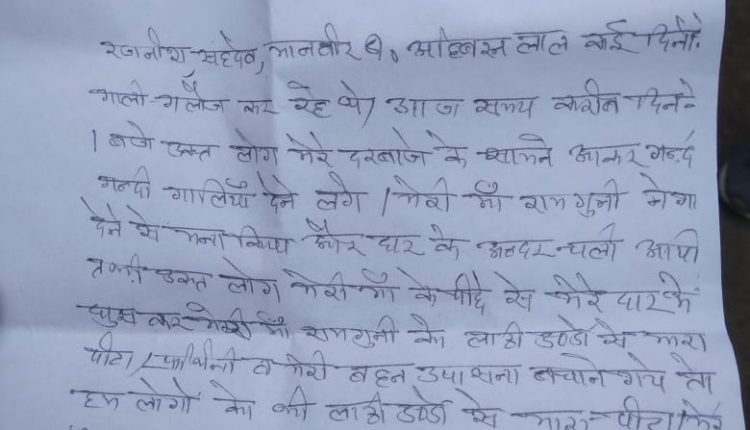 रजनीश, सहदेव, मानवीर S/o मोहन लाल कई दिनों से
गाली-गलौज कर रहे थे। आज समय करीब दिन के
1 बजे उक्त लोग मेरे दरवाजे के सामने आकर गन्दी
गन्दी गालियाँ देने लगे। मेरी माँ रामगुनी ने गा
देने से मना किया और घर के अन्दर चली आयी
तभी उक्त लोग मेरी माँ के पीछे से मेरे घर में
घुस कर मेरी माँ रामगुनी को लाठी डण्डो से मारा
पीटा। प्रार्थिनी व मेरी बहन उपासना बचाने गये तो
हम लोगों को भी लाठी डण्डो से मारा-पीटा। फिर